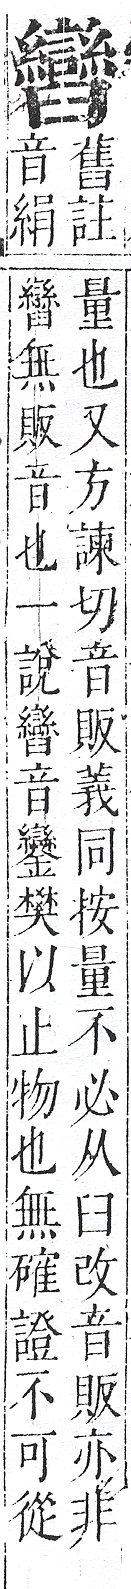 舊註
音絹
量也又方諫切音販義同按量不必从臼改音販亦非
無販音也一說音鑾樊以止物也無確證不可從